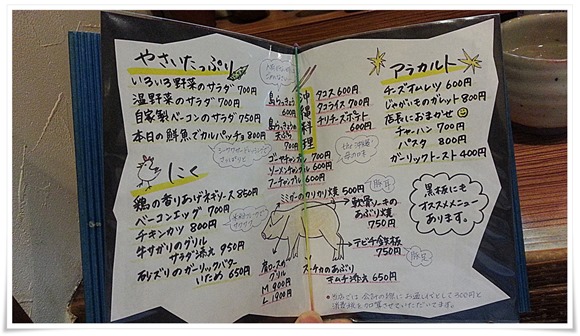 やさいたっぷり
いろいろ野菜のサラダ 700円
温野菜のサラダ 700円
自家製ベーコンのサラダ 750円
本日の鮮魚でカルパッチョ 800円
にく
鶏の香りあげネギソース 850円
ベーコンエッグ 700円
チキンカツ 800円
牛サガリのグリル
サラダ添え 950円
砂ズリのガーリックバター
いため 650円
沖縄料理
島らっきょう
600円
島らっきょう
天ぷら
700円
ゴーヤチャンプル 700円
ソーメンチャンプル 600円
フーチャンプル 600円
タコス 600円
タコライス 700円
チリチーズポテト
600円
ミミガーのカリカリ焼 500円
軟骨ソーキの
あぶり焼
750円
テビチ鉄板
750円
豚耳
豚足
肩ロースの
グリル
M 900円
L 1900円
キムチ添え 650円
アラカルト
チーズオムレツ 600円
じゃがいものガレット 800円
店長におまかせ
チャーハン 700円
パスタ 800円
ガーリックトースト 400円
黒板にも
オススメメニュー
あります。
当店では会計の際にお通し代として300円と
消費税を加算させていただいてます。